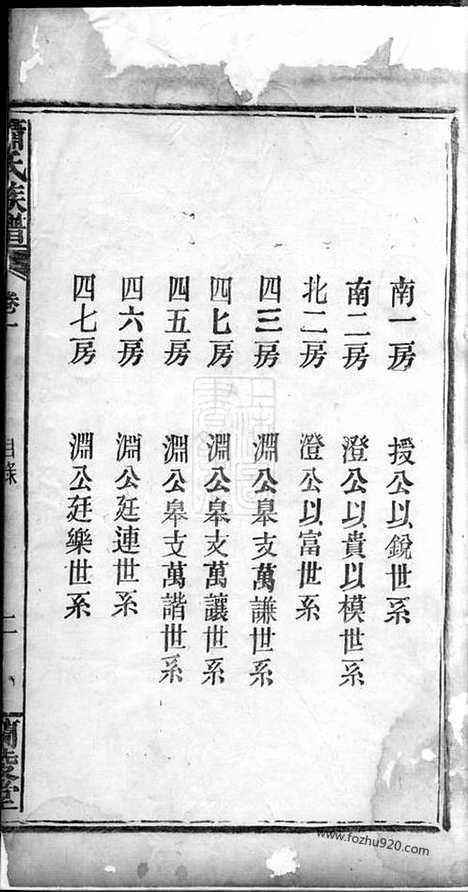 南一房　授公以銳世系
南二房　澄公以貴以模世系
北二房　澄公以富世系
四三房　淵公皋支萬謙世系
四七房　淵公皋支萬讓世系
四五房　淵公皋支萬諧世系
四六房　淵公廷連世系
四七房　淵公廷樂世系
蕭氏族譜　卷一　目錄　二　蘭陵堂
www.fozhu920.com